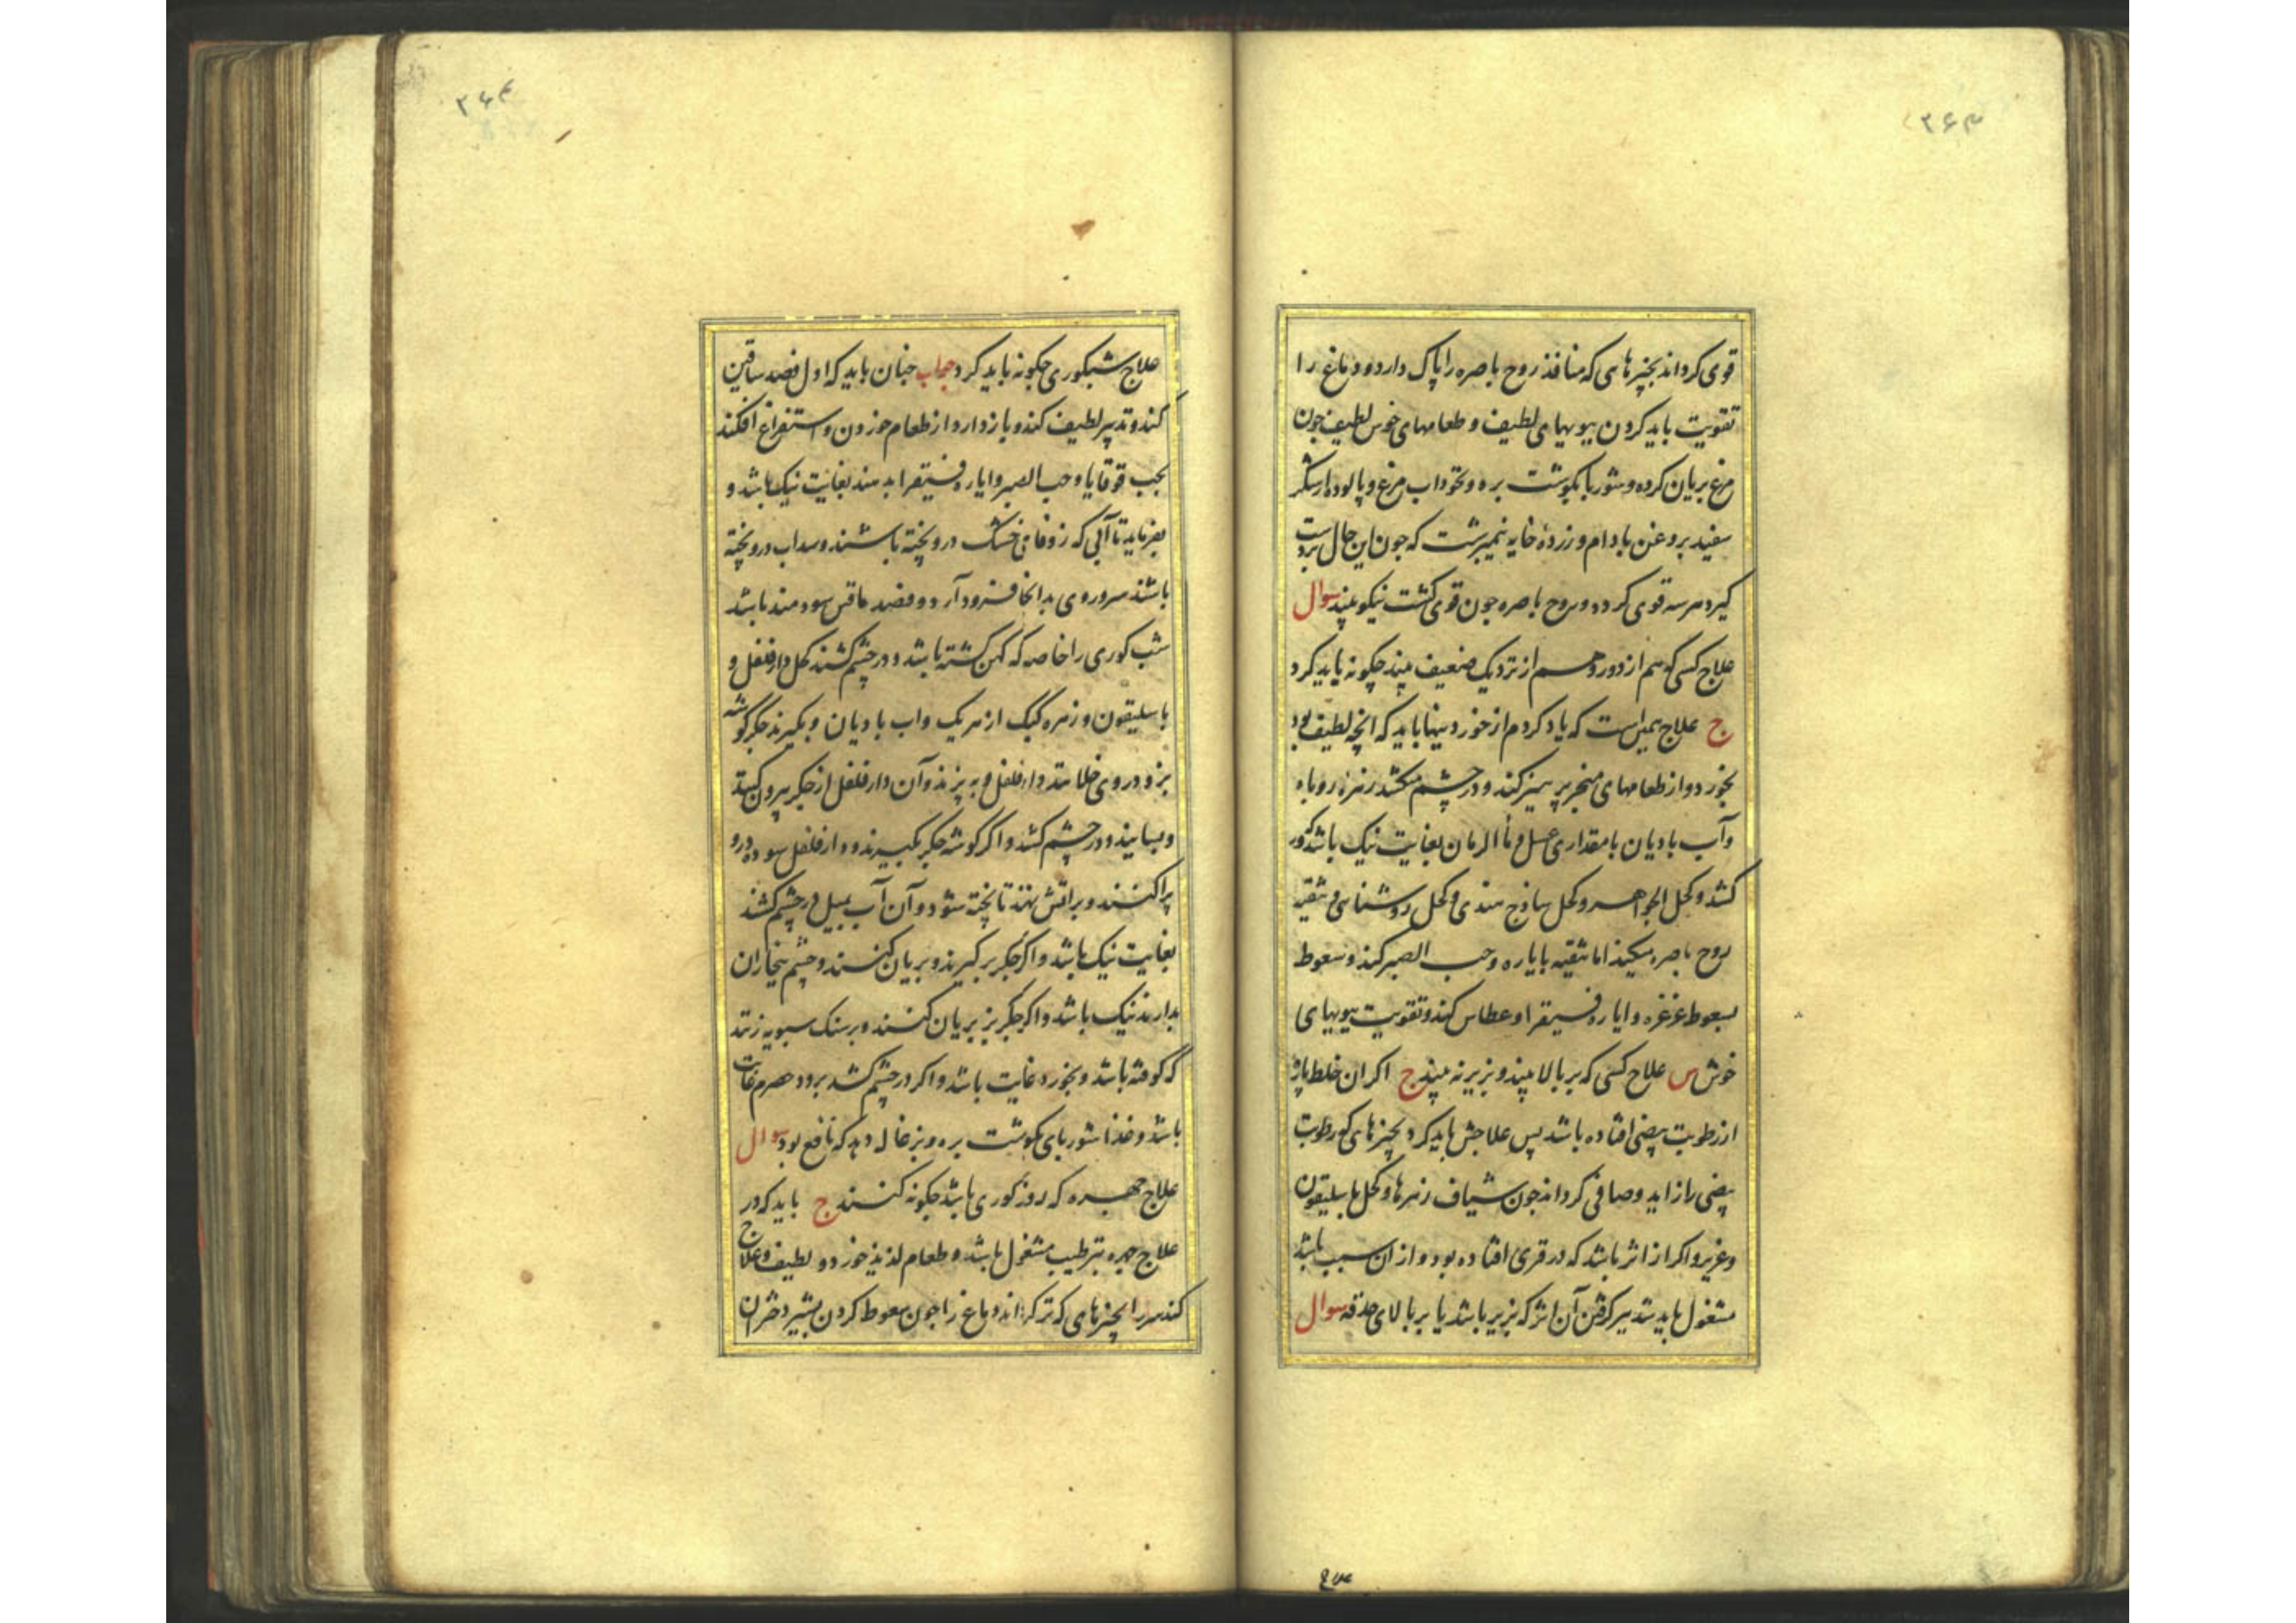 ۳۶۳
قوی کرداند بجیزهای که منافذ روح باصره را پاک دارد و دماغ را
تقویت باید کردن ببویهای لطیف و طعامهای خوش لطیف جون
مرغ بریان کرده و شوربا بکوشت بره و نخوداب مرغ و پالوده از شکر
سفید بروغن بادام و زردهٔ خایه نیمبرشت که جون این حال بردست
کیرد هر سه قوی کردد و روح باصره جون قوی کشت نیکو بیند سوال
علاج کسی که هم از دور و هم از نزدیک ضعیف بیند جکونه باید کرد
ج علاج همین است که یاد کردم از خوردنیها باید که انجه لطیف بود
بخورد و از طعامهای مبخر پرهیز کند و در جشم میکشد زهره روباه
وآب بادیان با مقداری عسل و ماالرمان بغایت نیک باشد کر
کشد و کحل الجواهر و کحل ساذج هندی و کحل روشنایی و تنقیه
روح باصره میکند اما تنقیه بایاره و حب الصبر کند و سعوط
بسعوط غرغره و ایاره فیقرا و عطاس کند و تقویت ببویهای
خوش س علاج کسی که بر بالا بیند و بزیر نه بیند ج اکر ان خلط باز
از رطوبت بیضی افتاده باشد پس علاجش باید کرد بجیزهای که رطوبت
بیضی را زاید و صافی کرداند جون شیاف زهرها و کحل باسلیقون
وغیره و اکر از اثر باشد که در قرنی افتاده بود و از ان سبب باشد
مشغول باید بتدبیر کرفتن آن اثر که بزیر باشد یا بر بالای حدقه سوال
۳۶۴
علاج شبکوری جکونه باید کرد جواب جنان باید که اول فصد ساقین
کند و تدبیر لطیف کند و باز دارد از طعام خوردن و استفراغ افکند
بحب قوقایا و حب الصبر و ایاره فیقرا بدهند بغایت نیک باشد و
بفرماید تا آبی که زوفای خشک درو بخته باشند و سداب درو بخته
باشند سر و روی بدانجا فرود آرد و فصد ماقین سودمند باشد
شب کوری را خاصه که کهن کشته باشد و در جشم کشند کحل دارفلفل و
باسلیقون و زهره کبک از هر یک واب بادیان و بکیرند جکر کوشه
بز و در وی خلانند دارفلفل و به پزند وآن دارفلفل از جکر بیرون کنند
وبسایند و در جشم کشند و اکر کوشه جکر بکیرند و دارفلفل سوده درو
پراکنند و بر اتش نهند تا بخته شود و آن آب بمیل در جشم کشند
بغایت نیک باشد و اکر جکر بز کیرند و بریان کنند و جشم ببخار آن
بدارند نیک باشد و اکر جکر بز بریان کنند و بر سنک سبویه زنند
که کوفته باشد و بخورد غایت باشد و اکر در جشم کشد برود حصرم غایت
باشد و غذا شوربای بکوشت بره و بزغاله دهد که نافع بود سوال
علاج جهره که روزکوری باشد جکونه کنند ج باید که در
علاج جهره بترطیب مشغول باشد و طعام لذیذ خورد و لطیف و علاج
کند سر را بجیزهای که تر کرداند دماغ را جون سعوط کردن بشیر دختران